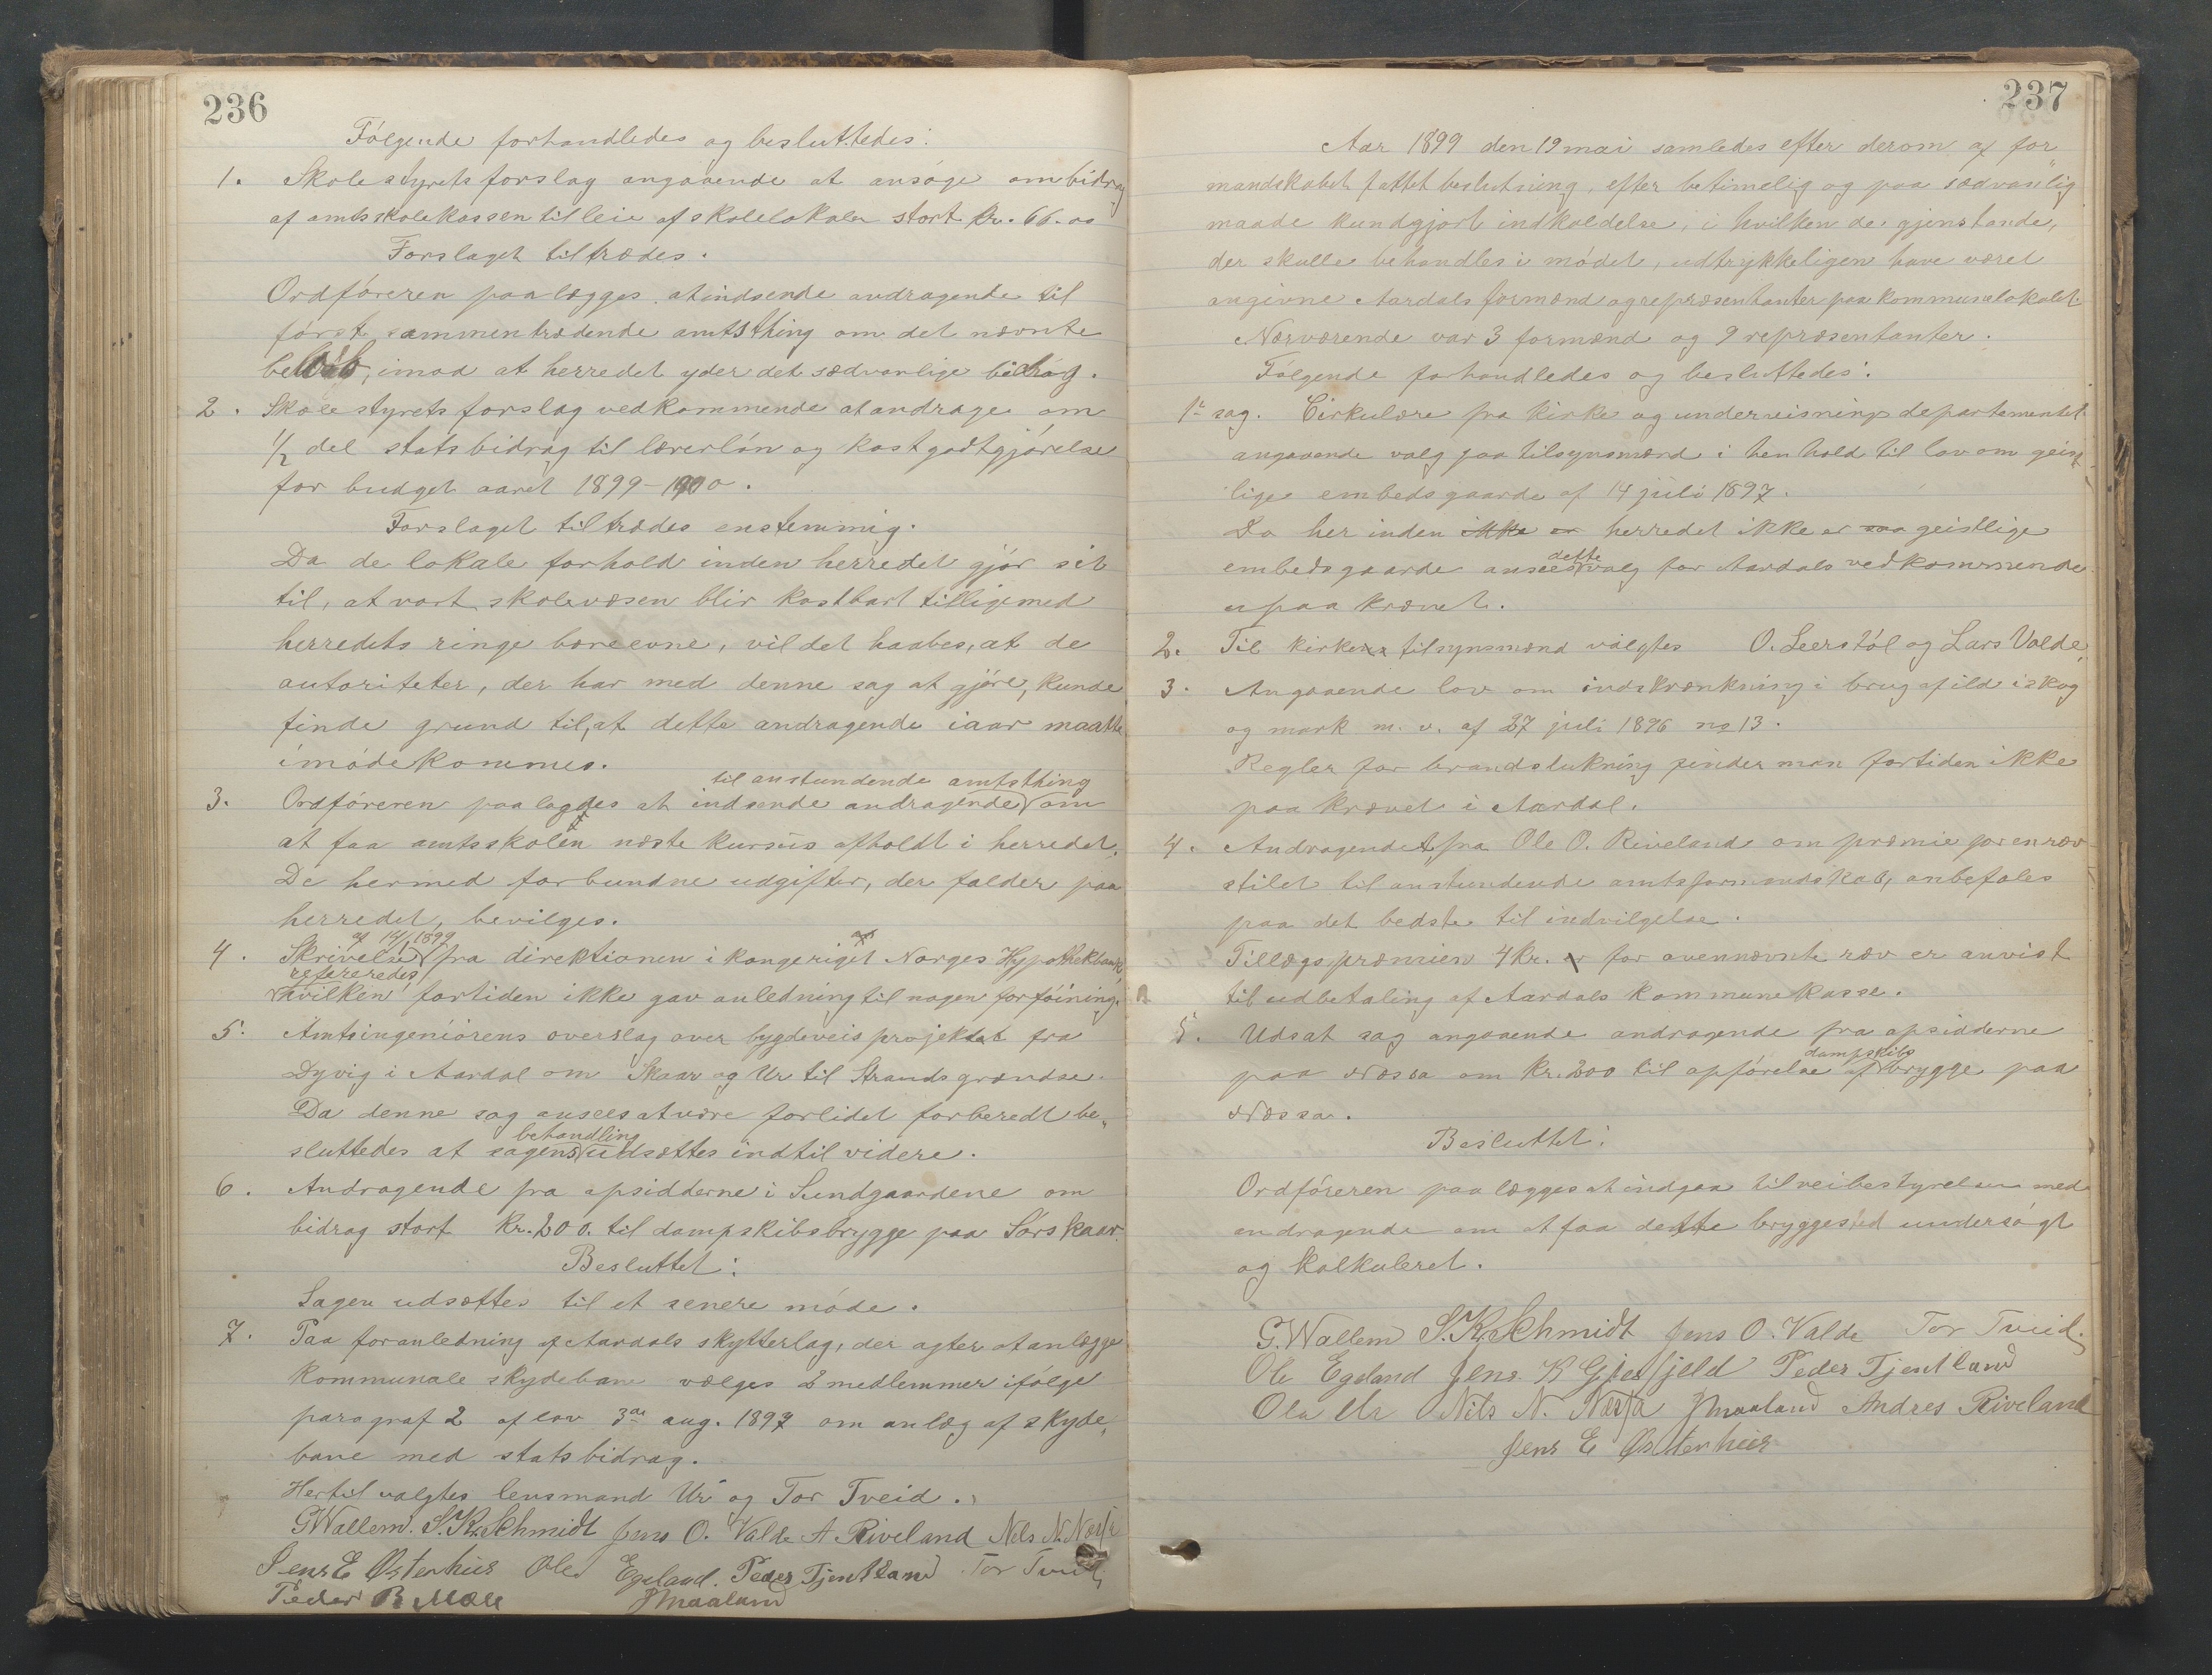 236
Følgende forhandledes og besluttedes:
1. Skolestyrets forslag angaaende at ansøge om bidrag
af amtsskolekassen til leie af skolelokaler stort kr. 66.00
Forslaget tiltrædes.
Ordføreren paalægges at indsende andragende til
først sammentrædende amtsthing om det nævnte
beløb, imod at herredet yder det sædvanlige bidrag.
2. Skolestyrets forslag vedkommende at andrage om
1/2 del statsbidrag til lærerløn og kostgodtgjørelse
for budget aaret 1899-1900.
Forslaget tiltrædes enstemmig.
Da de lokale forhold inden herredet gjør sit
til, at vort skolevæsen blir kostbart tilligemed
herredets ringe bæreevne, vil det haabes, at de
autoriteter, der har med denne sag at gjøre, kunde
finde grund til, at dette andragende iaar maatte
imødekommes.
til anstundende amtsthing
3. Ordføreren paalagdes at indsende andragende om
at faa amtsskolen næste kursus afholdt i herredet.
De hermed forbundne udgifter, der falder paa
herredet, bevilges.
af 14/1 1899
4. Skrivelse fra direktionen i kongeriget Norges Hypothekbank
refereredes
hvilken fortiden ikke gav anledning til nogen forføining.
5. Amtsingeniørens overslag over bygdeveisprojektet fra
Dyvig i Aardal om Skaar og Ur til Strands grændse.
Da denne sag ansees at være forlidet forberedt be„
behandling
sluttedes at sagens udsættes indtil videre.
6. Andragende fra opsidderne i Sundgaardene om
bidrag stort kr. 200. til dampskibsbrygge paa Sørskaar.
Besluttet:
Sagen udsættes til et senere møde.
7. Paa foranledning af Aardals skytterlag, der agter at anlægge
kommunale skydebane vælges 2 medlemmer ifølge
paragraf 2 af lov 3die aug. 1897 om anlæg af skyde„
bane med statsbidrag.
Hertil valgtes lensmand Ur og Tor Tveid.
G Wallem. S. K. Schmidt Jens O. Valde A. Riveland Nils N. Næssa
Jens E Østerhus Ole Egeland. Peder Tjentland Tor Tveid,
Peder B Mæle J Maaland
237
Aar 1899 den 19 mai samledes efter derom af for„
mandskabet fattet beslutning, efter betimelig og paa sædvanlig
maade kundgjort indkaldelse, i hvilken de gjenstande,
der skulle behandles i mødet, udtrykkeligen have været
angivne Aardals formænd og repræsentanter paa kommunelokalet.
Nærværende var 3 formænd og 9 repræsentanter.
Følgende forhandledes og besluttedes:
1ste sag. Cirkulære fra kirke og underveisnings departementet
angaaende valg paa tilsynsmænd i henhold til lov om geist„
lige embedsgaarde af 14 juli 1897.
Da her inden ikke er herredet ikke er saa geistlige
dette
embedsgaarde ansees valg for Aardals vedkommende
upaakrævet.
2. Til kirkens tilsynsmænd valgtes O. Leerstøl og Lars Valde.
3. Angaaende lov om indskrænkning i brug af ild i skog
og mark m. v. af 27 juli 1896 no 13.
Regler for brandslukning finder man fortiden ikke
paakrævet i Aardal.
4. Andragendet fra Ole O. Riveland om præmie for en ræv
stilet til anstundende amtsformandskab, anbefales
paa det bedste til indvilgelse.
Tillægspræmien 4 kr. for ovennævnte ræv er anvist
til udbetaling af Aardals kommunekasse.
5. Udsat sag angaaende andragende fra opsidderne
dampskibs
paa Næssa om kr. 200 til opførelse af brygge paa
Næssa.
Besluttet:
Ordføreren paalægges at indgaa til veibestyrelsen med
andragende om at faa dette bryggested undersøgt
og kalkuleret.
G. Wallem S. K. Schmidt Jens O. Valde Tor Tveid.
Ole Egeland Jens K Gjesfjeld Peder Tjentland
Ola Ur Nils N. Næssa J Maaland Andres Riveland
Jens E Østerhus